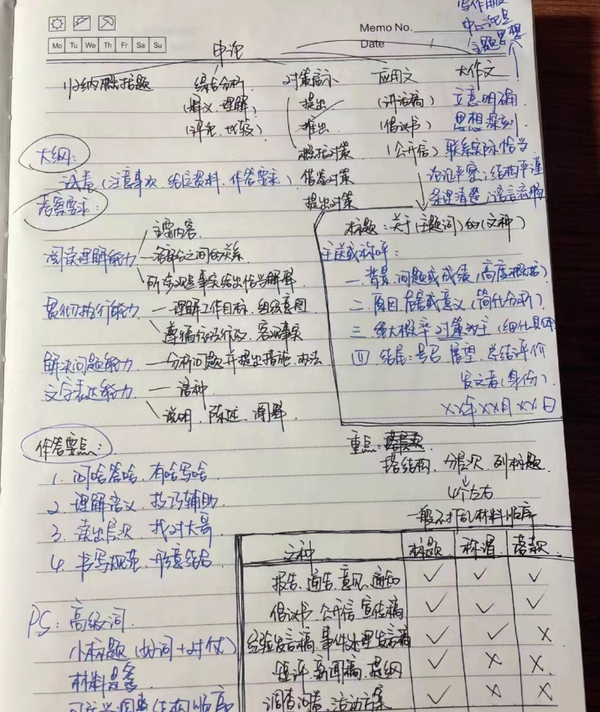 Memo No.
Date
Mo Tu We Th Fr Sa Su
申论
归纳概括题 综合分析 对策展示 应用文 大作文
(释义、理解) 提出 (讲话稿) 立意明确
(评论、比较) 推出 (倡议书) 思想深刻
概括对策 (公开信) 联系实际恰当
借鉴对策 论证严密;结构平谨
提出对策 条理清楚;语言流畅
大纲:
试卷(注意事项、给定资料、作答要求)
考察要求:
主要内容
阅读理解能力 各部分之间的关系
所有观点事实给出恰当解释
贯彻执行能力 — 理解工作目标、组织意图
遵循行政行政、客观事实
解决问题能力 — 分析问题并提出措施、办法
文字表达能力 — 语种
说明、陈述、阐释
标题:关于(主题词)的(文种)
主送或称呼:
一、背景、问题或成绩(高度概括)
二、原因、危害或意义(简什分析)
三、对策为主(细什具体)
四、结尾:号召、展望、总结评价
发文者(身份)
××年××月××日
作答要点:
1. 问啥答啥、有啥写啥
2. 理解含义、技巧辅助
3. 读出层次、找对大哥
4. 书写规范、形意结合
重点:
搭结构、分层次、列标题
4个左右
一般不打乱材料顺序
文种 标题 称谓 落款
报告、通告、意见、通知 ✓ ✓ ✓
倡议书、公开信、宣传稿 ✓ ✓ ✓
经验发言稿、事件处理发言稿 ✓ ✓ ×
短评、新闻稿、提纲 ✓ × ×
调查问卷、活动方案 ✓ × ×
PS: 高级词
小标题(动词+对仗)